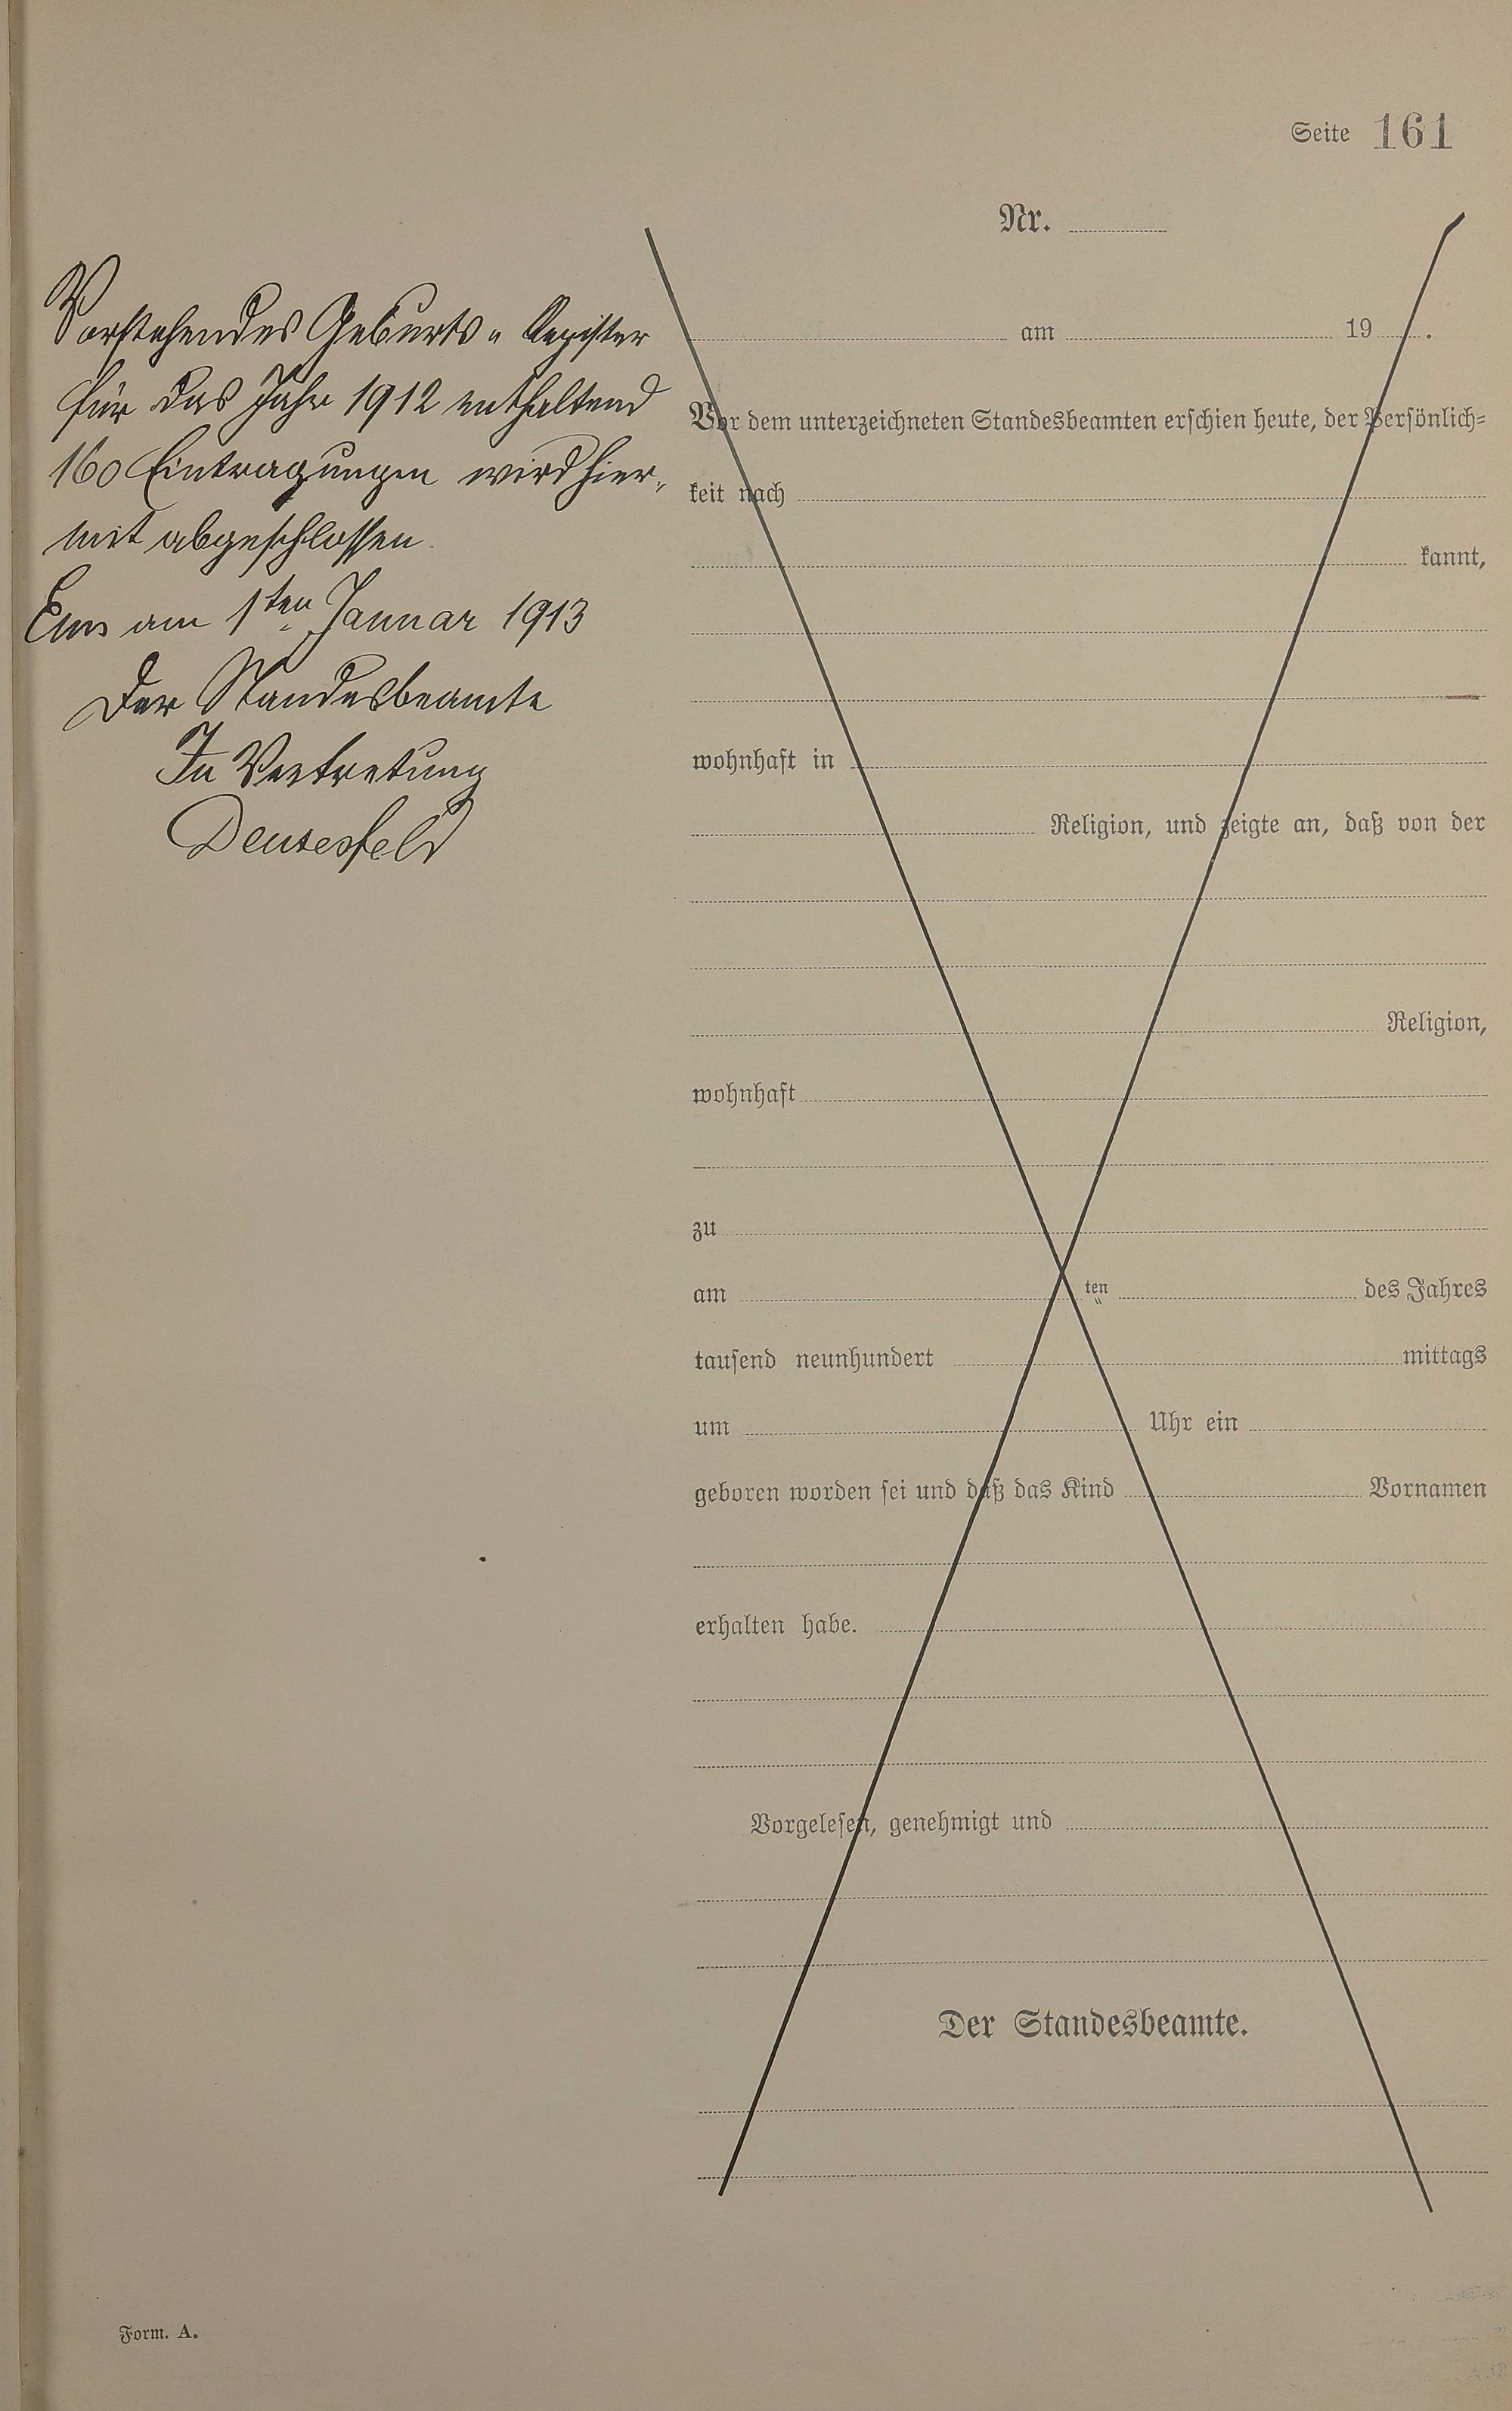 Seite 161
Nr.
Vorstehendes Geburts-Register
für das Jahr 1912 enthaltend
160 Eintragungen wird hier-
mit abgeschlossen.
Ems am 1ten Januar 1913
Der Standesbeamte
In Vertretung
Deusesfeld
am 19 .
Vor dem unterzeichneten Standesbeamten erschien heute, der Persönlich-
keit nach
kannt,
wohnhaft in
Religion, und zeigte an, daß von der
Religion,
wohnhaft
zu
am ten des Jahres
tausend neunhundert mittags
um Uhr ein
geboren worden sei und daß das Kind Vornamen
erhalten habe.
Vorgelesen, genehmigt und
Der Standesbeamte.
Form. A.